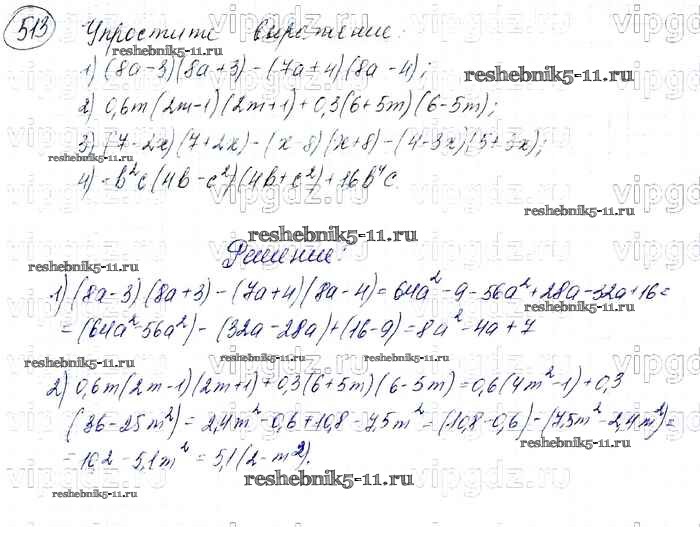 513 Упростите выражение:
1) (8a-3)(8a+3)-(7a+4)(8a-4);
2) 0,6m(2m-1)(2m+1)+0,3(6+5m)(6-5m);
3) (7-2x)(7+2x)-(x-8)(x+8)-(4-3x)(5+3x);
4) -b²c(4b-c²)(4b+c²)+16b⁴c.
Решение:
1) (8a-3)(8a+3)-(7a+4)(8a-4)=64a²-9-56a²+28a-32a+16=
=(64a²-56a²)-(32a-28a)+(16-9)=8a²-4a+7
2) 0,6m(2m-1)(2m+1)+0,3(6+5m)(6-5m)=0,6(4m²-1)+0,3
(36-25m²)=2,4m²-0,6+10,8-7,5m²=(10,8-0,6)-(7,5m²-2,4m²)=
=10,2-5,1m²=5,1(2-m²).
vipgdz.ru
reshebnik5-11.ru